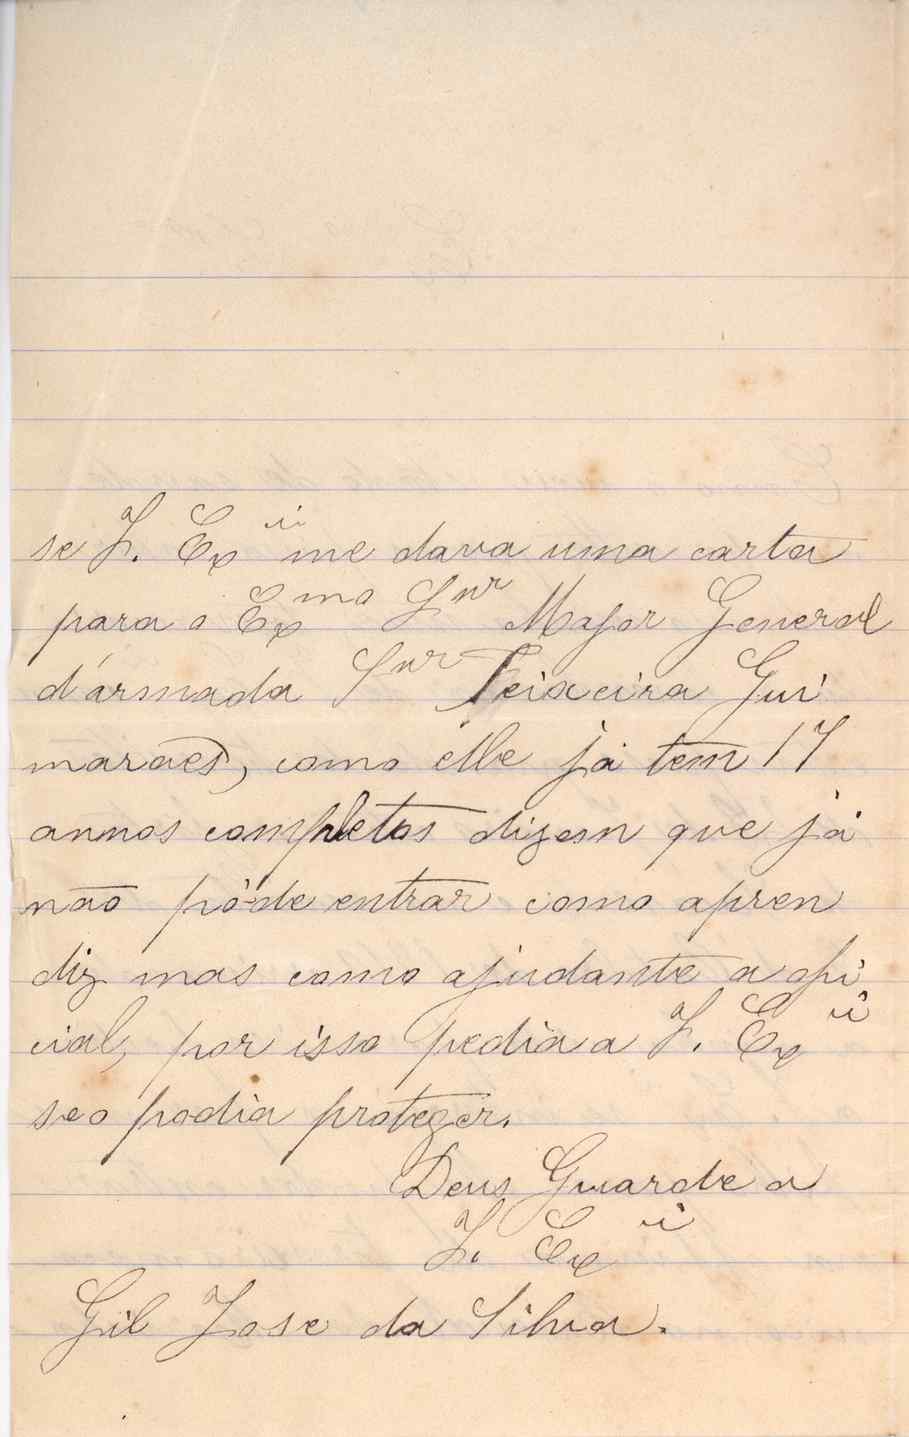 se V. Exª me dava uma carta
para o Exmo Snr Major General
d'armada Snr Teixeira Gui
maraes, como elle já tem 17
annos completos dizem que já
não póde entrar como apren
diz mas como ajudante a ofi
cial, por isso pedia a V. Exª
se o podia proteger.
Deus Guarde a
V. Exª
Gil Jose da Silva.